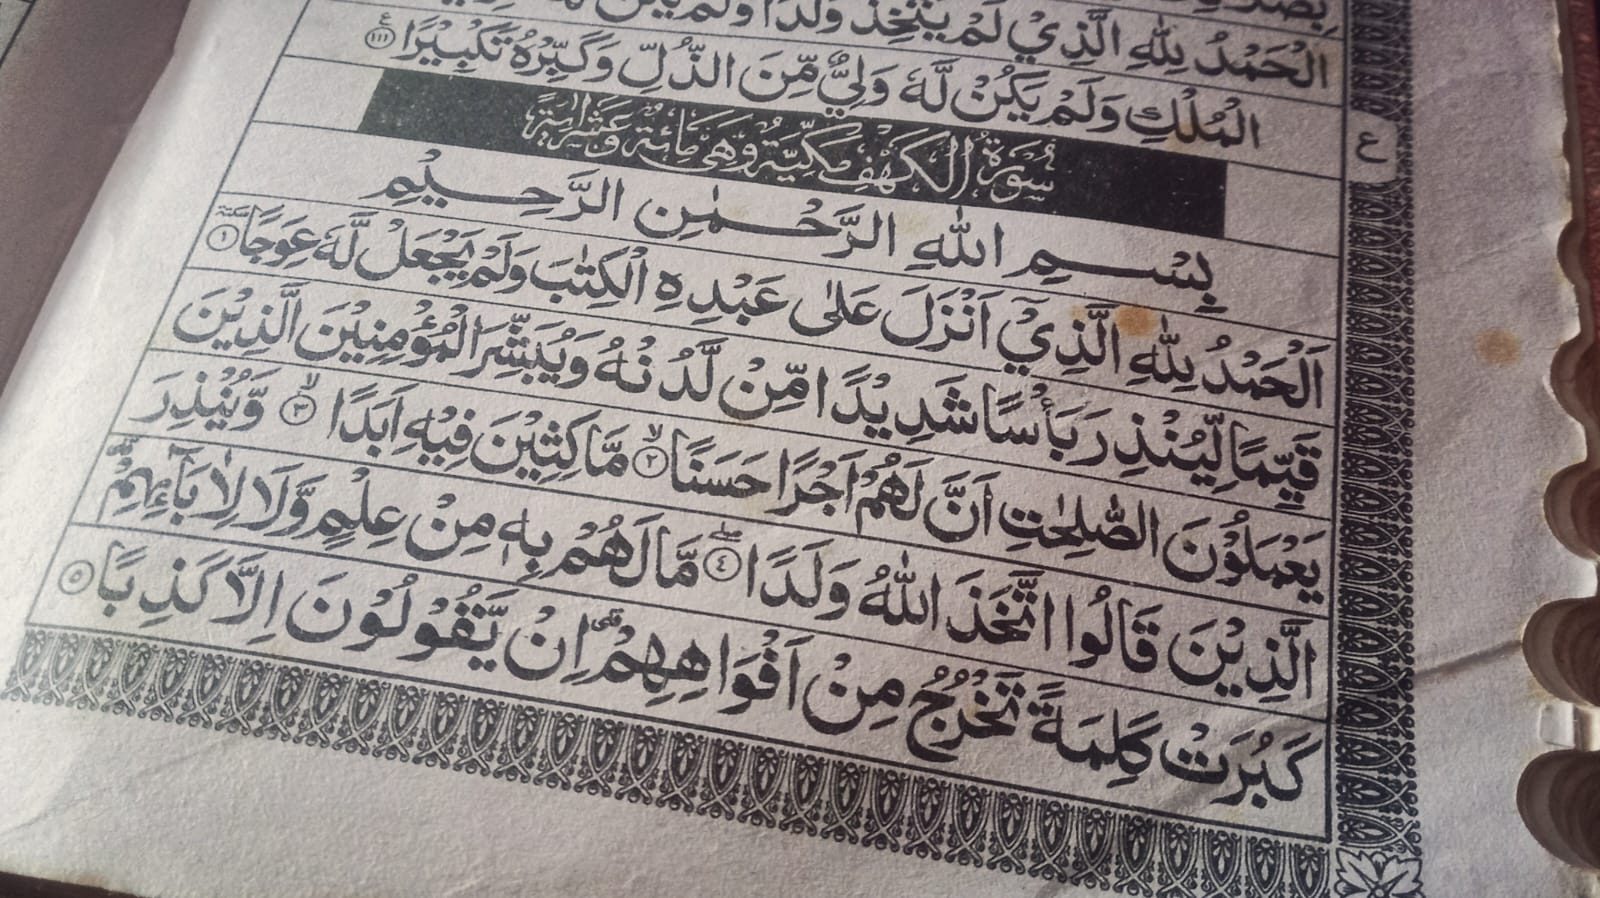 الْحَمْدُ لِلّٰهِ الَّذِيْ لَمْ يَتَّخِذْ وَلَدًا وَلَمْ يَكُنْ
الْمُلْكِ وَلَمْ يَكُنْ لَّهٗ وَلِيٌّ مِّنَ الذُّلِّ وَكَبِّرْهُ تَكْبِيْرًا ۝١١١ ع
ع
سُوْرَةُ الْكَهْفِ مَكِّيَّةٌ وَّهِىَ مِائَةٌ وَّعَشْرُ اٰيَةً
بِسْمِ اللّٰهِ الرَّحْمٰنِ الرَّحِيْمِ
اَلْحَمْدُ لِلّٰهِ الَّذِيْٓ اَنْزَلَ عَلٰى عَبْدِهِ الْكِتٰبَ وَلَمْ يَجْعَلْ لَّهٗ عِوَجًا ۝١ سكتة
قَيِّمًا لِّيُنْذِرَ بَاْسًا شَدِيْدًا مِّنْ لَّدُنْهُ وَيُبَشِّرَ الْمُؤْمِنِيْنَ الَّذِيْنَ
يَعْمَلُوْنَ الصّٰلِحٰتِ اَنَّ لَهُمْ اَجْرًا حَسَنًا ۝٢ۙ مَّاكِثِيْنَ فِيْهِ اَبَدًا ۝٣ۙ وَّيُنْذِرَ
الَّذِيْنَ قَالُوا اتَّخَذَ اللّٰهُ وَلَدًا ۝٤ مَّا لَهُمْ بِهٖ مِنْ عِلْمٍ وَّلَا لِاٰبَآئِهِمْ
كَبُرَتْ كَلِمَةً تَخْرُجُ مِنْ اَفْوَاهِهِمْ اِنْ يَّقُوْلُوْنَ اِلَّا كَذِبًا ۝٥